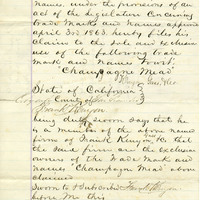 names, under the provisions of an
act of the Legislature Concerning
Trade Marks and Names approved
April 3rd 1863. hereby files his
claims to the sole and exclusive
use of the following Trade
Mark and Names Towit:
"Champagne Mead"
State of California
County of
Frank Kenyon
being duly sworn says that he
is a member of the above named
firm of Frank Kenyon &Co that
the said firm are the exclusive
owners of the Trade Mark and
name "Champagne Mead" above
claimed
Sworn to & Subscribed Frank Kenyon
before me this